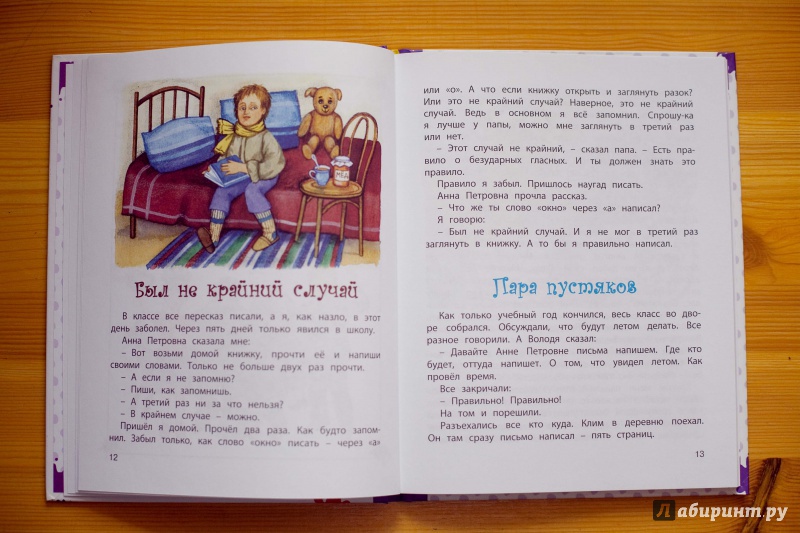 Был не крайний случай
В классе все пересказ писали, а я, как назло, в этот
день заболел. Через пять дней только явился в школу.
Анна Петровна сказала мне:
– Вот возьми домой книжку, прочти её и напиши
своими словами. Только не больше двух раз прочти.
– А если я не запомню?
– Пиши, как запомнишь.
– А третий раз ни за что нельзя?
– В крайнем случае – можно.
Пришёл я домой. Прочёл два раза. Как будто запом-
нил. Забыл только, как слово «окно» писать – через «а»
12
или «о». А что если книжку открыть и заглянуть разок?
Или это не крайний случай? Наверное, это не крайний
случай. Ведь в основном я всё запомнил. Спрошу-ка
я лучше у папы, можно мне заглянуть в третий раз
или нет.
– Этот случай не крайний, – сказал папа. – Есть пра-
вило о безударных гласных. И ты должен знать это
правило.
Правило я забыл. Пришлось наугад писать.
Анна Петровна прочла рассказ.
– Что же ты слово «окно» через «а» написал?
Я говорю:
– Был не крайний случай. И я не мог в третий раз
заглянуть в книжку. А то бы я правильно написал.
Пара пустяков
Как только учебный год кончился, весь класс во дво-
ре собрался. Обсуждали, что будут летом делать. Все
разное говорили. А Володя сказал:
– Давайте Анне Петровне письма напишем. Где кто
будет, оттуда напишет. О том, что увидел летом. Как
провёл время.
Все закричали:
– Правильно! Правильно!
На том и порешили.
Разъехались все кто куда. Клим в деревню поехал.
Он там сразу письмо написал – пять страниц.
13
МЁД
Лабиринт.ру